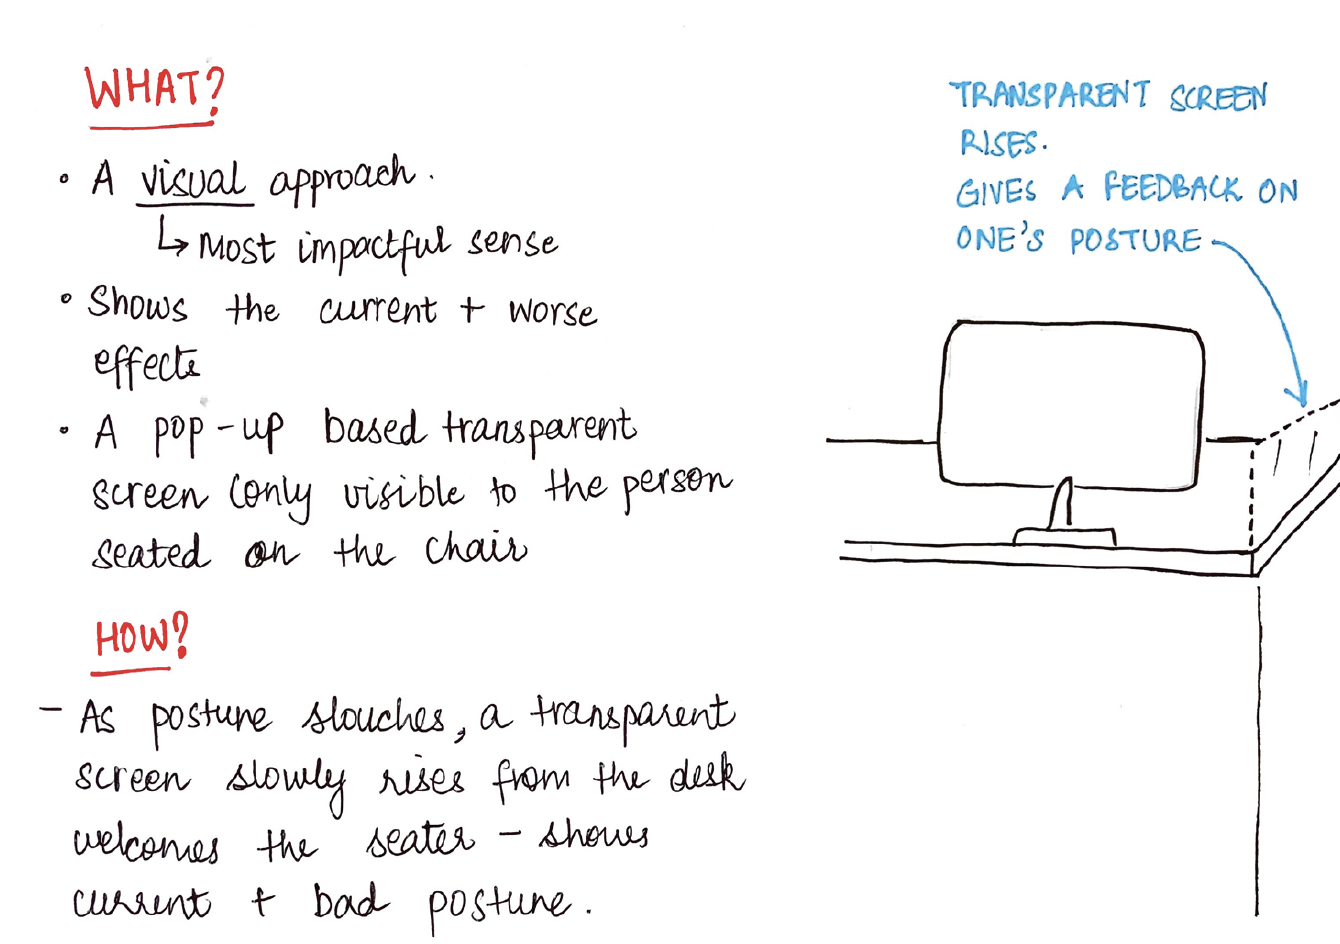 WHAT?
• A visual approach.
↳ Most impactful sense
• Shows the current + worse
effects
• A pop-up based transparent
screen (only visible to the person
seated on the chair
HOW?
- As posture slouches, a transparent
screen slowly rises from the desk
welcomes the seater - shows
current + bad posture.
TRANSPARENT SCREEN
RISES.
GIVES A FEEDBACK ON
ONE'S POSTURE